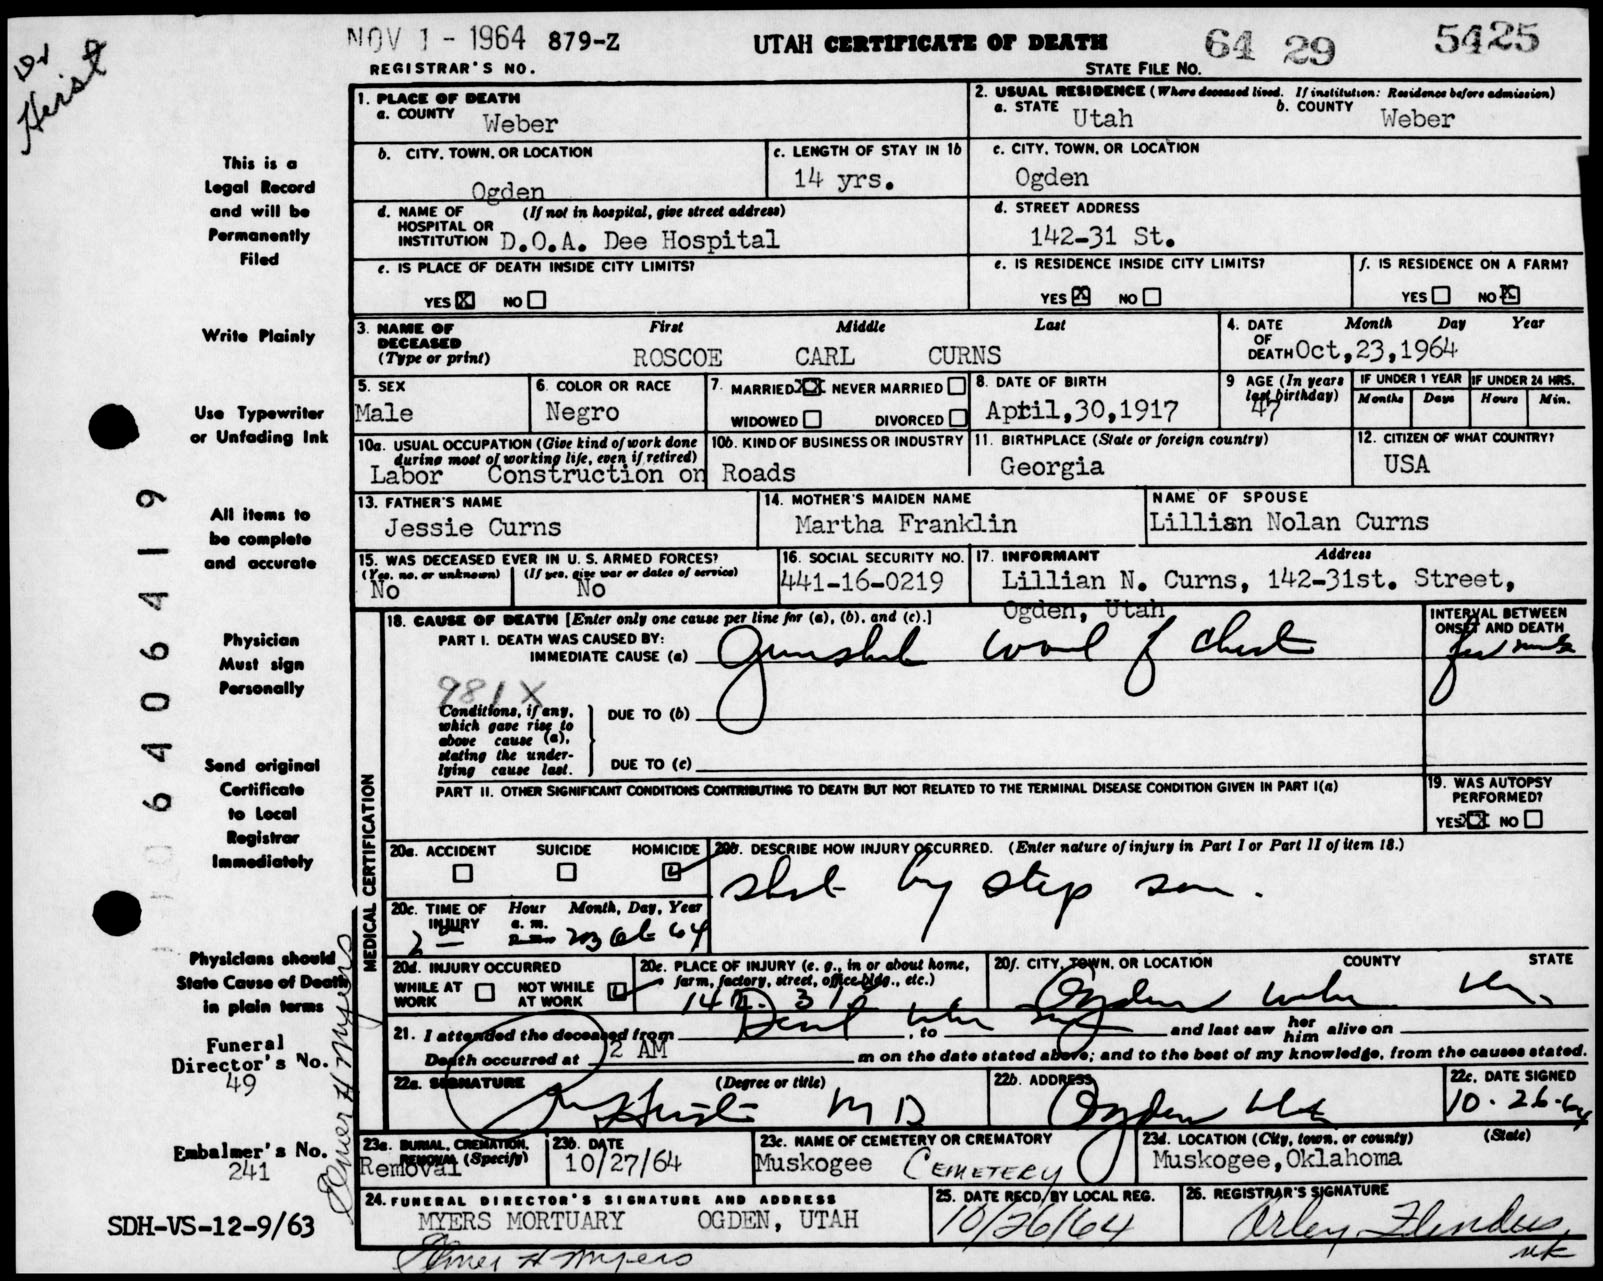 Dr Heist
NOV 1 - 1964 879-Z UTAH CERTIFICATE OF DEATH 64 29 5425
REGISTRAR'S NO. STATE FILE NO.
1. PLACE OF DEATH
a. COUNTY Weber
2. USUAL RESIDENCE (Where deceased lived. If institution: Residence before admission)
a. STATE Utah b. COUNTY Weber
b. CITY, TOWN, OR LOCATION Ogden
c. LENGTH OF STAY IN 1b 14 yrs.
c. CITY, TOWN, OR LOCATION Ogden
d. NAME OF HOSPITAL OR INSTITUTION (If not in hospital, give street address) D.O.A. Dee Hospital
d. STREET ADDRESS 142-31 St.
e. IS PLACE OF DEATH INSIDE CITY LIMITS?
YES X NO
e. IS RESIDENCE INSIDE CITY LIMITS?
YES X NO
f. IS RESIDENCE ON A FARM?
YES NO X
3. NAME OF DECEASED (Type or print) First Middle Last
ROSCOE CARL CURNS
4. DATE OF DEATH Month Day Year
Oct,23,1964
5. SEX Male
6. COLOR OR RACE Negro
7. MARRIED XX NEVER MARRIED
WIDOWED DIVORCED
8. DATE OF BIRTH April,30,1917
9 AGE (In years last birthday) 47
IF UNDER 1 YEAR Months Days
IF UNDER 24 HRS. Hours Min.
10a. USUAL OCCUPATION (Give kind of work done during most of working life, even if retired)
Labor Construction on
10b. KIND OF BUSINESS OR INDUSTRY Roads
11. BIRTHPLACE (State or foreign country) Georgia
12. CITIZEN OF WHAT COUNTRY? USA
13. FATHER'S NAME Jessie Curns
14. MOTHER'S MAIDEN NAME Martha Franklin
NAME OF SPOUSE Lillian Nolan Curns
15. WAS DECEASED EVER IN U. S. ARMED FORCES?
(Yes, no, or unknown) (If yes, give war or dates of service)
No No
16. SOCIAL SECURITY NO. 441-16-0219
17. INFORMANT Address
Lillian N. Curns, 142-31st. Street,
Ogden, Utah
18. CAUSE OF DEATH [Enter only one cause per line for (a), (b), and (c).]
PART I. DEATH WAS CAUSED BY:
IMMEDIATE CAUSE (a) Gunshot wound of chest
INTERVAL BETWEEN ONSET AND DEATH
981X
Conditions, if any, which gave rise to above cause (a), stating the underlying cause last.
DUE TO (b)
DUE TO (c)
PART II. OTHER SIGNIFICANT CONDITIONS CONTRIBUTING TO DEATH BUT NOT RELATED TO THE TERMINAL DISEASE CONDITION GIVEN IN PART I(a)
19. WAS AUTOPSY PERFORMED?
YES XX NO
20a. ACCIDENT SUICIDE HOMICIDE
20b. DESCRIBE HOW INJURY OCCURRED. (Enter nature of injury in Part I or Part II of item 18.)
shot by step son.
20c. TIME OF INJURY Hour a. m. p. m. Month, Day, Year
2 — 23 Oct 64
20d. INJURY OCCURRED
WHILE AT WORK NOT WHILE AT WORK
20e. PLACE OF INJURY (e. g., in or about home, farm, factory, street, office bldg., etc.)
20f. CITY, TOWN, OR LOCATION COUNTY STATE
Ogden Weber
21. I attended the deceased from Dead when , to and last saw her him alive on
Death occurred at 2 AM m on the date stated above; and to the best of my knowledge, from the causes stated.
22a. SIGNATURE (Degree or title)
Heist MD
22b. ADDRESS Ogden Utah
22c. DATE SIGNED 10-26-64
23a. BURIAL, CREMATION, REMOVAL (Specify) Removal
23b. DATE 10/27/64
23c. NAME OF CEMETERY OR CREMATORY Muskogee CEMETERY
23d. LOCATION (City, town, or county) (State) Muskogee,Oklahoma
24. FUNERAL DIRECTOR'S SIGNATURE AND ADDRESS
MYERS MORTUARY OGDEN, UTAH
Elmer H Myers
25. DATE RECD. BY LOCAL REG. 10/26/64
26. REGISTRAR'S SIGNATURE
Arley Flinders
nk
This is a
Legal Record
and will be
Permanently
Filed
Write Plainly
Use Typewriter
or Unfading Ink
All items to
be complete
and accurate
Physician
Must sign
Personally
Send original
Certificate
to Local
Registrar
Immediately
Physicians should
State Cause of Death
in plain terms
Funeral
Director's No.
49
Embalmer's No.
241
SDH-VS-12-9/63
MEDICAL CERTIFICATION
Elmer H Myers
0 6 4 0 6 4 1 9